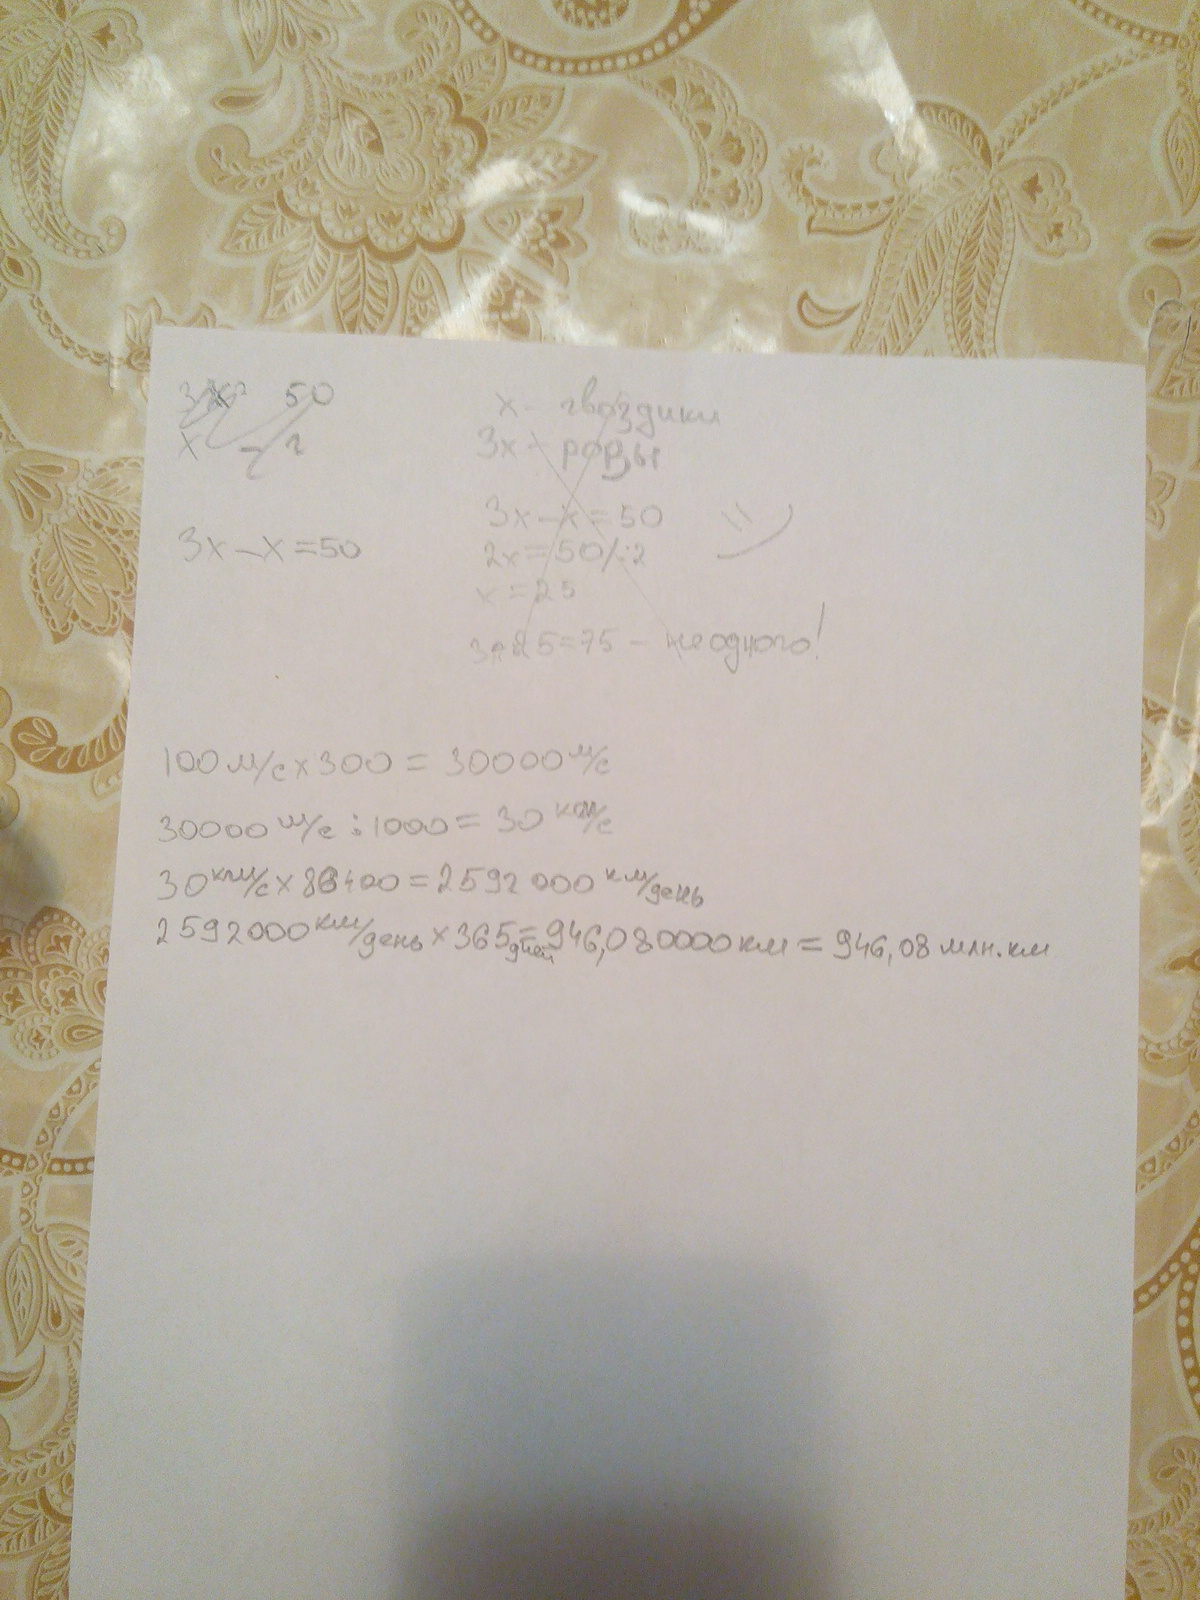 3x 50
x - ?
3x - x = 50
x - гвоздики
3x - розы
3x - x = 50
2x = 50 /:2
x = 25
3x25=75 - не одного!
100 м/с x 300 = 30000 м/с
30000 м/с : 1000 = 30 км/с
30 км/с x 86400 = 2592000 км/день
2592000 км/день x 365 дней = 946,080000 км = 946,08 млн. км